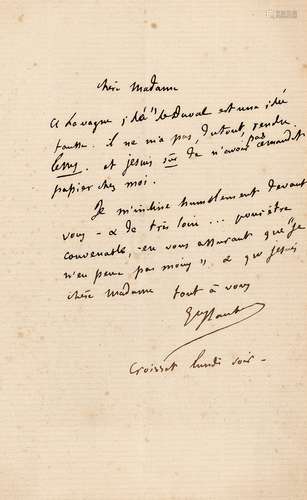 chère Madame
La vague idée de Duval est une idée
fausse. il ne m'a pas, du tout, rendu
les et je suis sûr de n'avoir pas ce maudit
papier chez moi.
Je m'incline humblement devant
vous - & de très loin... pour être
convenable, - en vous assurant que "je
n'en pense pas moins", & que je suis
chère Madame tout à vous
Gve Flaubert
Croisset lundi soir -